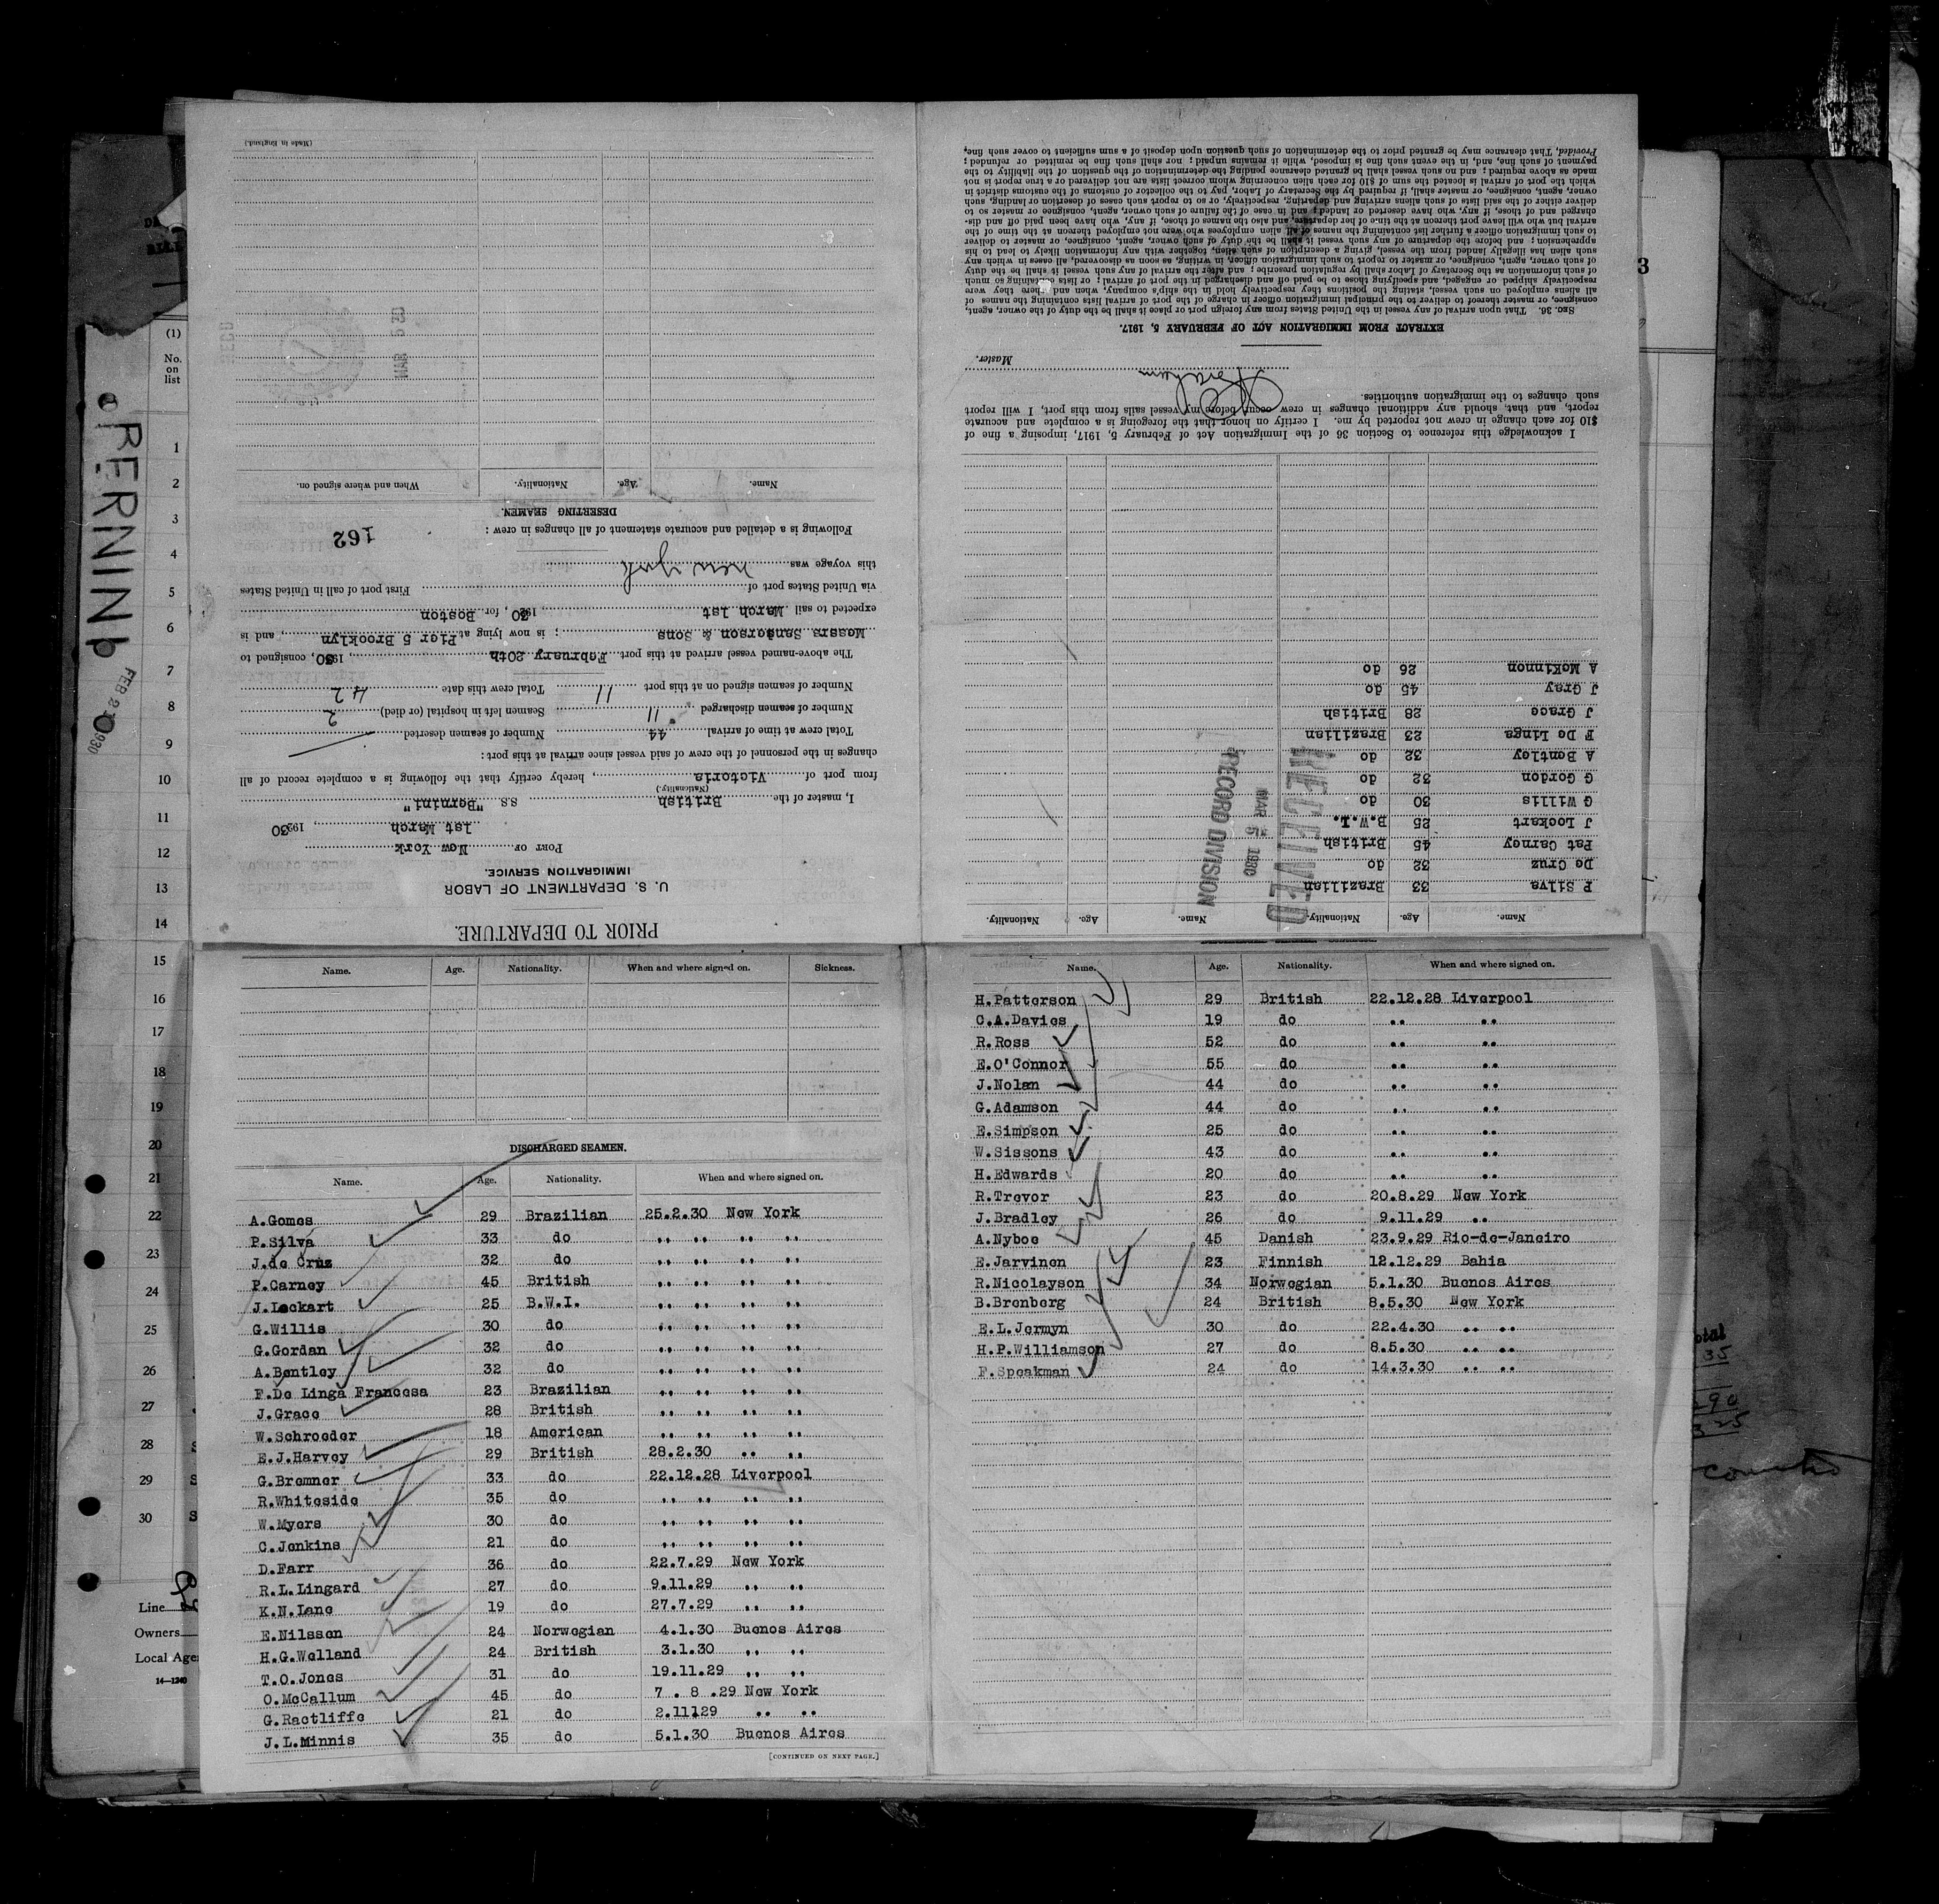 PRIOR TO DEPARTURE.
U. S. DEPARTMENT OF LABOR
IMMIGRATION SERVICE.
PORT OF New York
1st March, 19230
I, master of the British S.S. "Bernini"
(Nationality.)
from port of Victoria, hereby certify that the following is a complete record of all
changes in the personnel of the crew of said vessel since arrival at this port:
Total crew at time of arrival 44 Number of seamen deserted
Number of seamen discharged 11 Seamen left in hospital (or died) 2
Number of seamen signed on at this port 11 Total crew this date 42
The above-named vessel arrived at this port February 20th, 1930, consigned to
Messrs Sanderson & Sons; is now lying at Pier 5 Brooklyn, and is
expected to sail March 1st, 19230, for Boston
via United States port of First port of call in United States
this voyage was New York
162
Following is a detailed and accurate statement of all changes in crew:
DESERTING SEAMEN.
Name. Age. Nationality. When and where signed on.
MAR 5
REC'D
(Made in England.)
Name. Age. Nationality. Name. Age. Nationality.
P Silva 33 Brazilian
De Cruz 32 do
Pat Carney 45 British
J Lockart 25 B.W.I.
G Willis 30 do
G Gordon 32 do
A Bentley 32 do
F De Linga 23 Brazilian
J Grace 28 British
J Gray 45 do
A McKinnon 26 do
RECEIVED
MAR 5 1930
RECORD DIVISION
I acknowledge this reference to Section 36 of the Immigration Act of February 5, 1917, imposing a fine of
$10 for each change in crew not reported by me. I certify on honor that the foregoing is a complete and accurate
report, and that, should any additional changes in crew occur before my vessel sails from this port, I will report
such changes to the immigration authorities.
Master.
EXTRACT FROM IMMIGRATION ACT OF FEBRUARY 5, 1917.
SEC. 36. That upon arrival of any vessel in the United States from any foreign port or place it shall be the duty of the owner, agent,
consignee, or master thereof to deliver to the principal immigration officer in charge of the port of arrival lists containing the names of
all aliens employed on such vessel, stating the positions they respectively hold in the ship's company, when and where they were
respectively shipped or engaged, and specifying those to be paid off and discharged in the port of arrival; or lists containing so much
of such information as the Secretary of Labor shall by regulation prescribe; and after the arrival of any such vessel it shall be the duty
of such owner, agent, consignee, or master to report to such immigration officer, in writing, as soon as discovered, all cases in which any
such alien has illegally landed from the vessel, giving a description of such alien, together with any information likely to lead to his
apprehension; and before the departure of any such vessel it shall be the duty of such owner, agent, consignee, or master to deliver
to such immigration officer a further list containing the names of all alien employees who were not employed thereon at the time of the
arrival but who will leave port thereon at the time of her departure, and also the names of those, if any, who have been paid off and dis-
charged and of those, if any, who have deserted or landed; and in case of the failure of such owner, agent, consignee or master so to
deliver either of the said lists of such aliens arriving and departing, respectively, or so to report such cases of desertion or landing, such
owner, agent, consignee, or master shall, if required by the Secretary of Labor, pay to the collector of customs of the customs district in
which the port of arrival is located the sum of $10 for each alien concerning whom correct lists are not delivered or a true report is not
made as above required; and no such vessel shall be granted clearance pending the determination of the question of the liability to the
payment of such fine, and, in the event such fine is imposed, while it remains unpaid; nor shall such fine be remitted or refunded;
Provided, That clearance may be granted prior to the determination of such question upon deposit of a sum sufficient to cover such fine.
Name. Age. Nationality. When and where signed on. Sickness.
DISCHARGED SEAMEN.
Name. Age. Nationality. When and where signed on.
A.Gomes 29 Brazilian 25.2.30 New York
P.Silva 33 do ,, ,, ,, ,,
J.de Cruz 32 do ,, ,, ,, ,,
P.Carney 45 British ,, ,, ,, ,,
J.Lockart 25 B.W.I. ,, ,, ,, ,,
G.Willis 30 do ,, ,, ,, ,,
G.Gordan 32 do ,, ,, ,, ,,
A.Bentley 32 do ,, ,, ,, ,,
F.De Linga Francesa 23 Brazilian ,, ,, ,, ,,
J.Grace 28 British ,, ,, ,, ,,
W.Schroeder 18 American ,, ,, ,, ,,
E.J.Harvey 29 British 28.2.30 ,, ,,
G.Bremner 33 do 22.12.28 Liverpool
R.Whiteside 35 do ,, ,, ,, ,,
W.Myers 30 do ,, ,, ,, ,,
C.Jenkins 21 do ,, ,, ,, ,,
D.Farr 36 do 22.7.29 New York
R.L.Lingard 27 do 9.11.29 ,, ,,
K.N.Lane 19 do 27.7.29 ,, ,,
E.Nilssen 24 Norwegian 4.1.30 Buenos Aires
H.G.Welland 24 British 3.1.30 ,, ,,
T.O.Jones 31 do 19.11.29 ,, ,,
O.McCallum 45 do 7 . 8 .29 New York
G.Ractliffe 21 do 2.11129 ,, ,,
J.L.Minnis 35 do 5.1.30 Buenos Aires
[CONTINUED ON NEXT PAGE.]
Name. Age. Nationality. When and where signed on.
H.Patterson 29 British 22.12.28 Liverpool
C.A.Davies 19 do ,, ,,
R.Ross 52 do ,, ,,
E.O'Connor 55 do ,, ,,
J.Nolan 44 do ,, ,,
G.Adamson 44 do ,, ,,
E.Simpson 25 do ,, ,,
W.Sissons 43 do ,, ,,
H.Edwards 20 do ,, ,,
R.Trevor 23 do 20.8.29 New York
J.Bradley 26 do 9.11.29 ,,
A.Nyboe 45 Danish 23.9.29 Rio-de-Janeiro
E.Jarvinen 23 Finnish 12.12.29 Bahia
R.Nicolayson 34 Norwegian 5.1.30 Buenos Aires
B.Brenberg 24 British 8.5.30 New York
E.L.Jermyn 30 do 22.4.30 ,, ,,
H.P.Williamson 27 do 8.5.30 ,, ,,
F.Speakman 24 do 14.3.30 ,, ,,
BERNINI
FEB 2 1930
(1)
No.
on
list
1
2
3
4
5
6
7
8
9
10
11
12
13
14
15
16
17
18
19
20
21
22
23
24
25
26
27
28
29
30
Line
Owners
Local Age
14—1240
3
otal
35
290
3 25